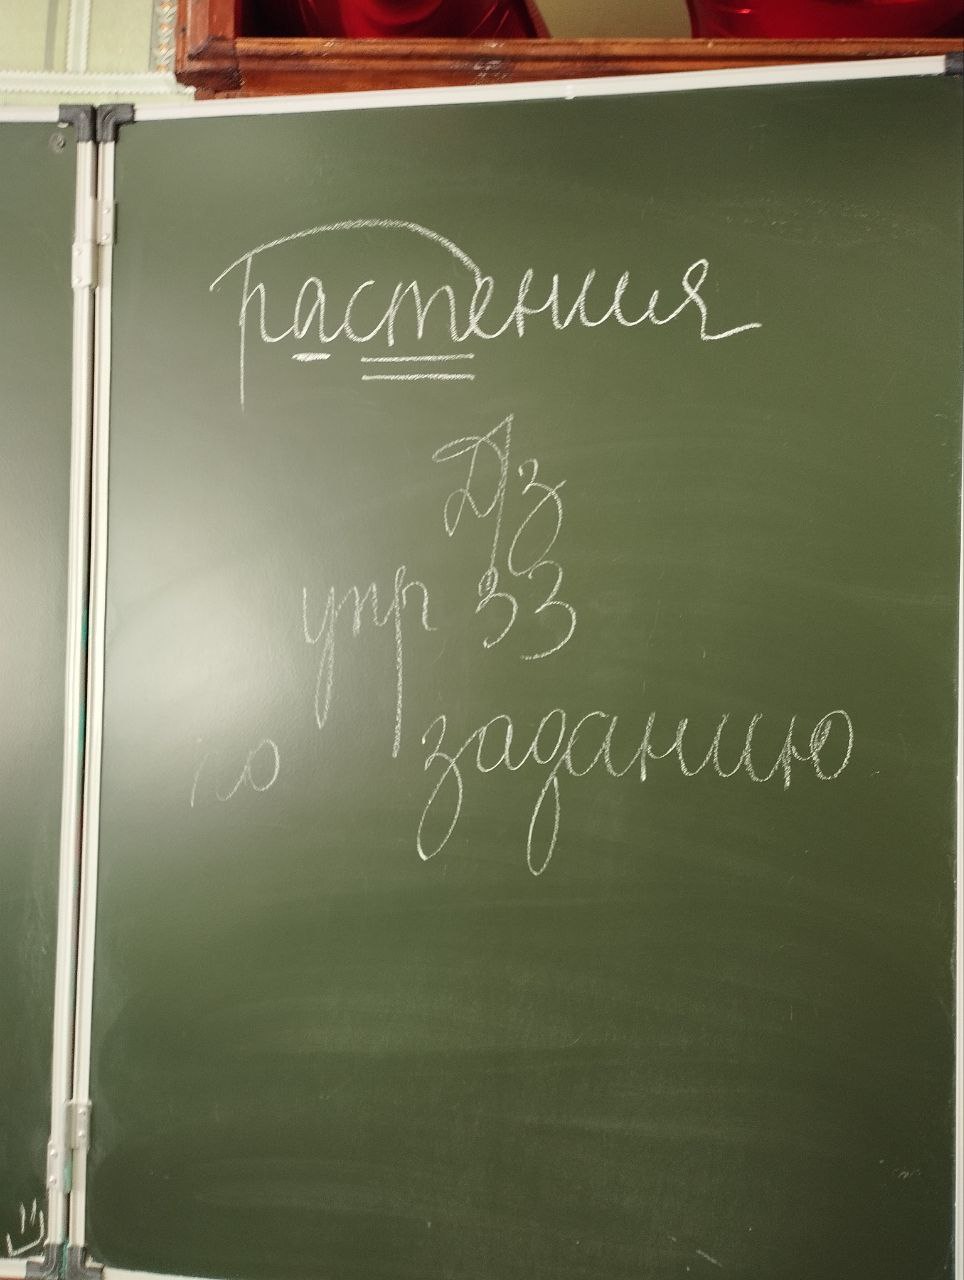 растения
Дз
упр 33
по заданию